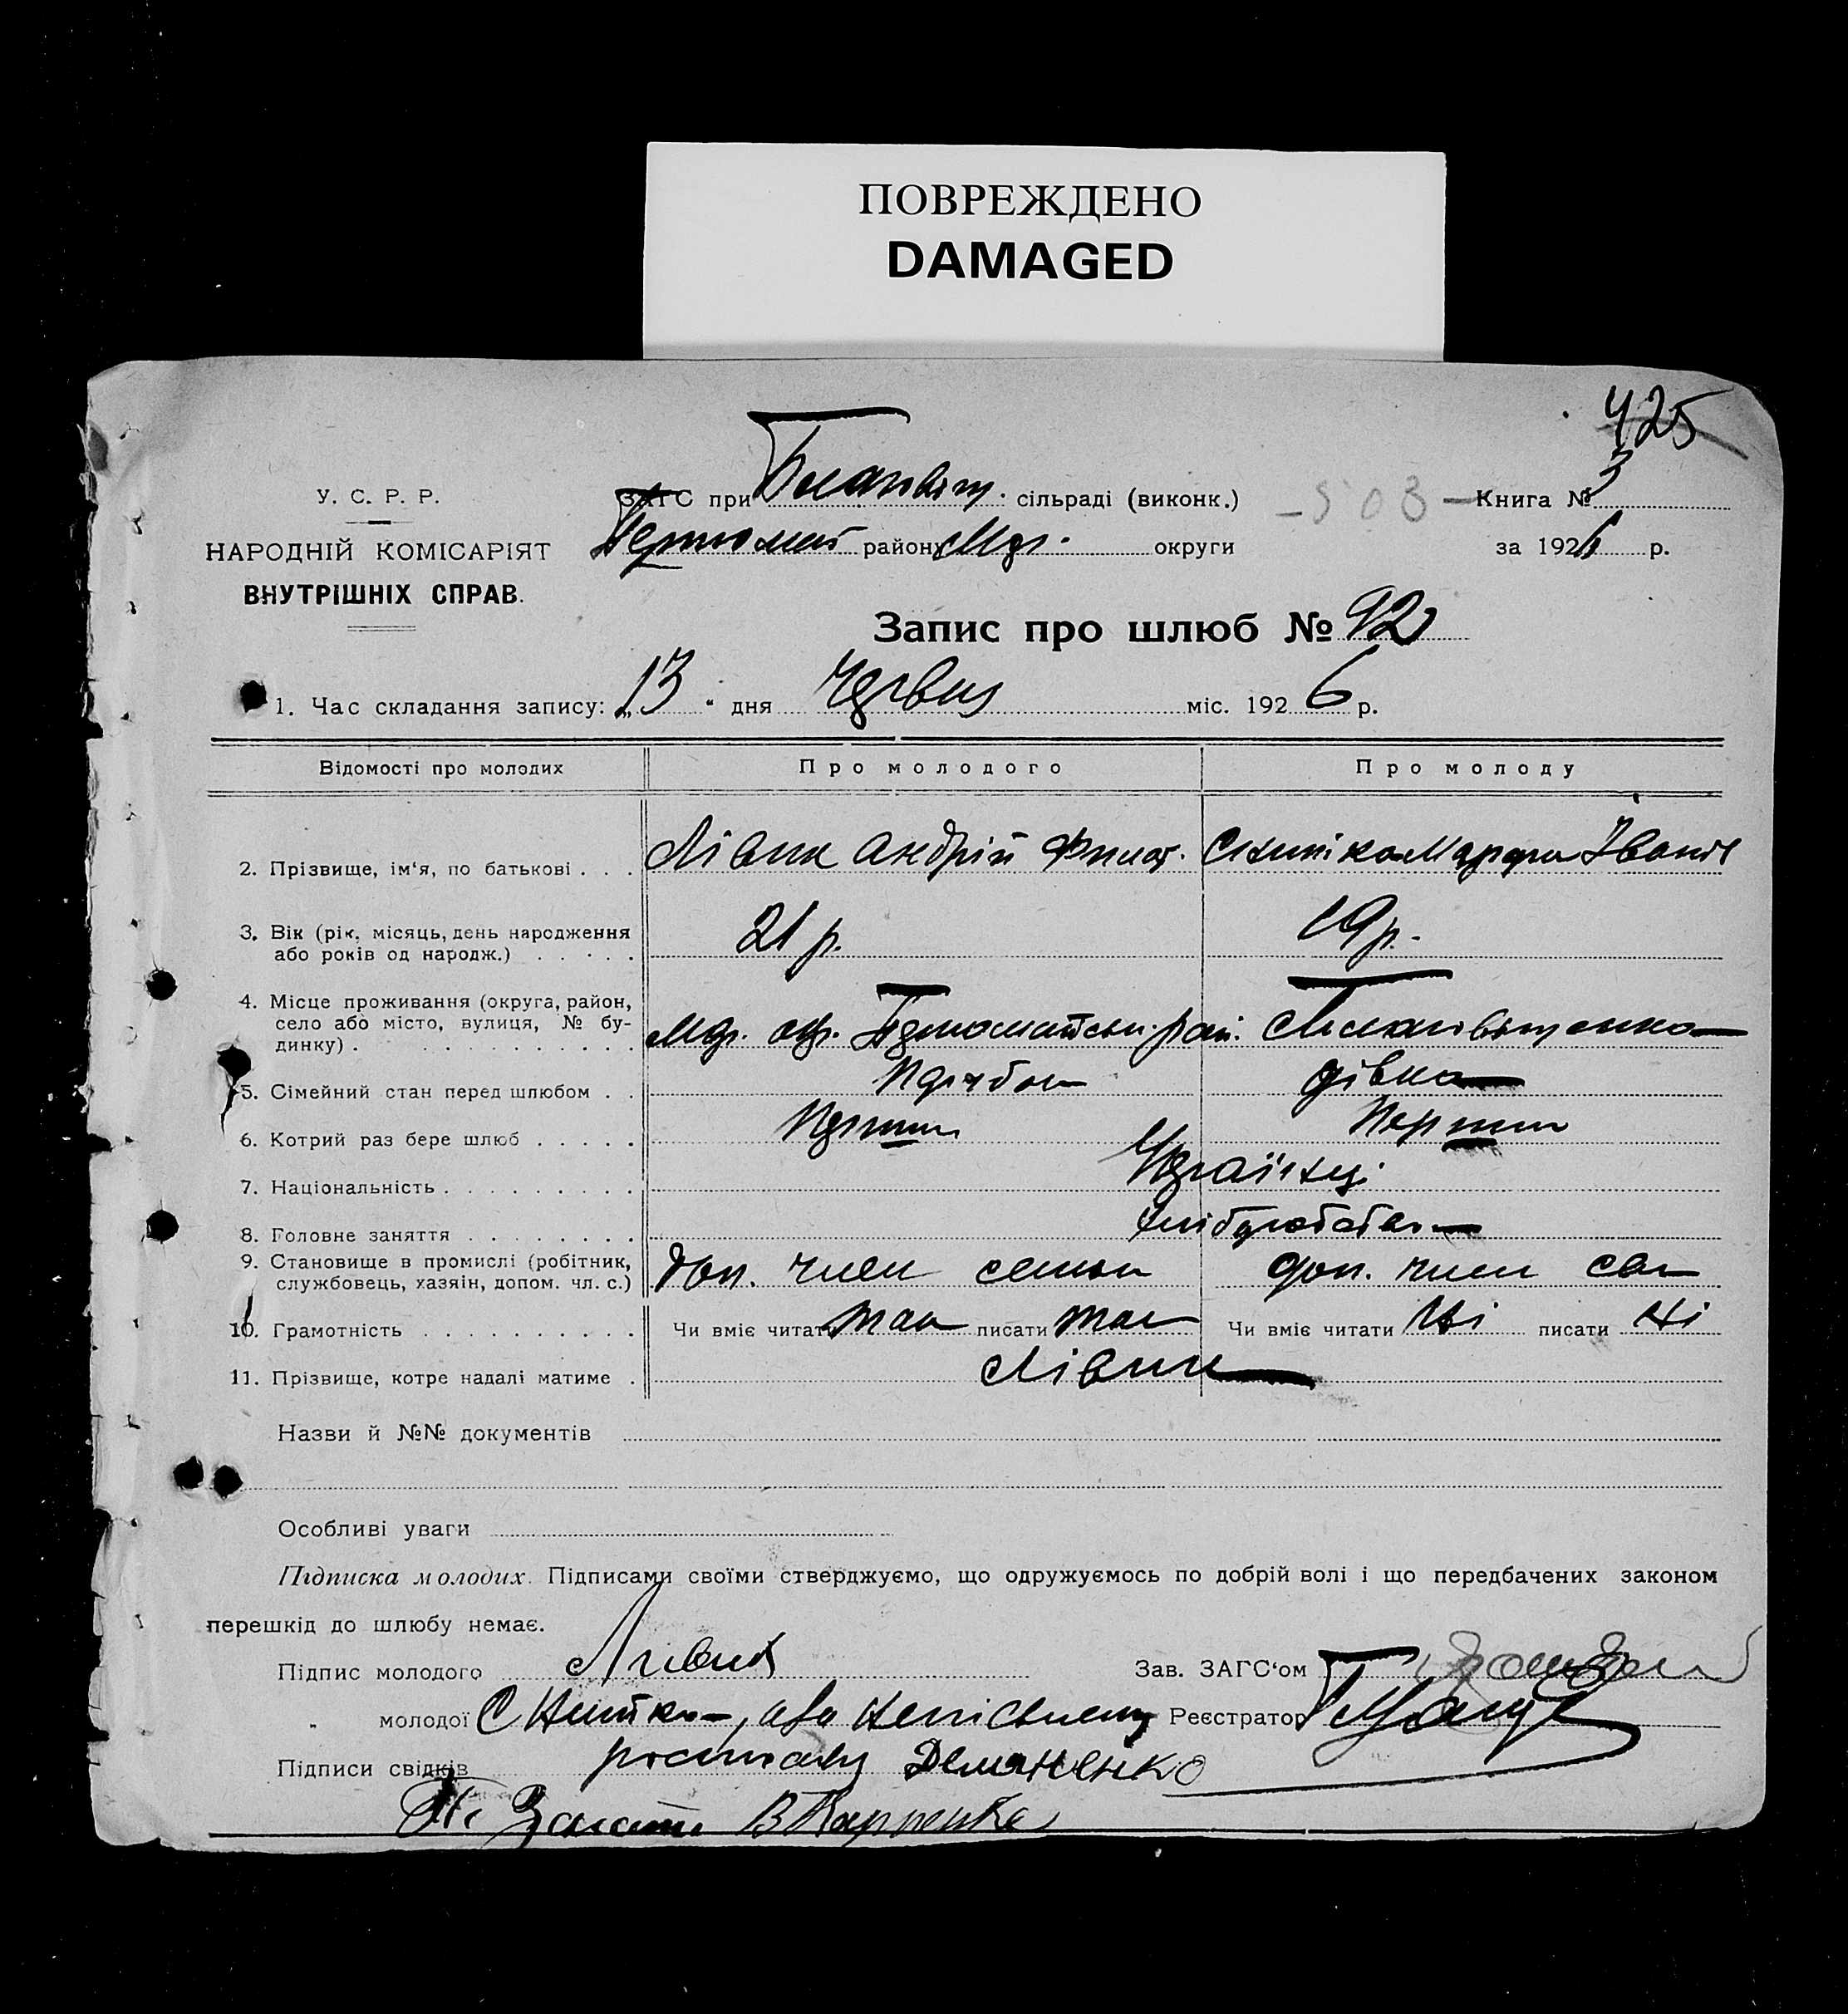 ПОВРЕЖДЕНО
DAMAGED
425
У. С. Р. Р.
НАРОДНІЙ КОМІСАРІЯТ
ВНУТРІШНІХ СПРАВ.
ЗАГС при сільраді (виконк.)
району округи
- 503 -
Книга № 3
за 1926 р.
Запис про шлюб № 92
1. Час складання запису: „13" дня Червня міс. 1926 р.
Відомості про молодих Про молодого Про молоду
2. Прізвище, ім'я, по батькові . . . Лівик Андрій Филат. Марфа Іванів
3. Вік (рік, місяць, день народження
або років од народж.) . . . . . 21 р. 19 р.
4. Місце проживання (округа, район,
село або місто, вулиця, № бу-
динку) . . . . . . . . . . . окр. рай.
5. Сімейний стан перед шлюбом . . Парубок дівка
6. Котрий раз бере шлюб . . . . . Перший Перший
7. Національність . . . . . . . . . Українці
8. Головне заняття . . . . . . . . Хліборобство
9. Становище в промислі (робітник,
службовець, хазяін, допом. чл. с.) доп. член семьи доп. член сем
10. Грамотність . . . . . . . . . . Чи вміє читати так писати так Чи вміє читати Ні писати Ні
11. Прізвище, котре надалі матиме . Лівик
Назви й №№ документів
Особливі уваги
Підписка молодих. Підписами своїми стверджуємо, що одружуємось по добрій волі і що передбачених законом
перешкід до шлюбу немає.
Підпис молодого Ливик Зав. ЗАГС'ом
" молодої Реєстратор
Підписи свідків Демяненко
В Карпенко